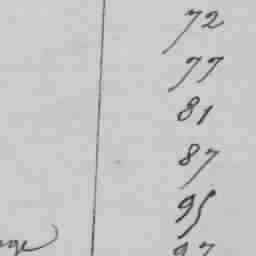 72
77
81
87
95
97